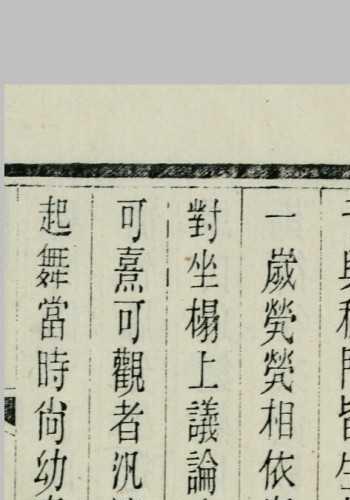 與
一歲煢煢相依
對坐榻上議論
可熹可觀者汎
起舞當時尙幼